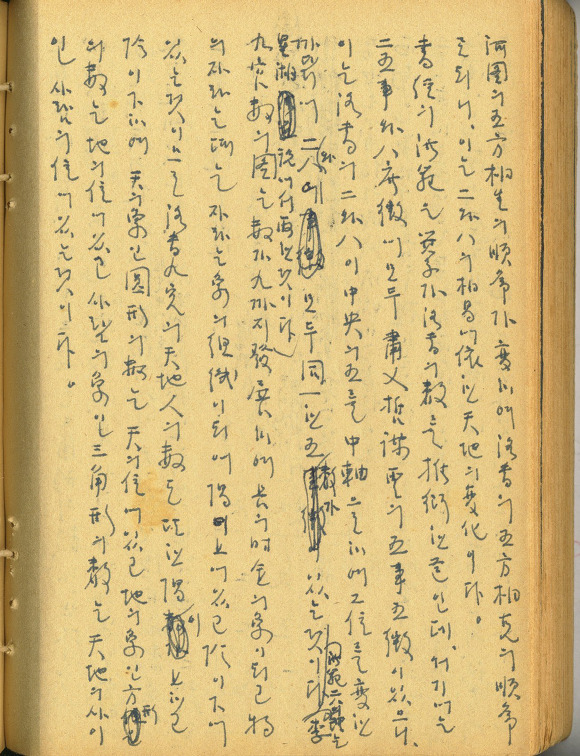 河圖의 五方相生의 順序가 變하여 洛書의 五方相克의 順序
로 되니, 이는 二와 八의 相易에 依한 天地의 變化이다。
書經의 洪範은 箕子가 洛書의 數를 推衍한 것인데, 여기에는
二五事와 八庶徵에 모두 肅乂哲謀聖의 五事五徵이 있으니,
이는 洛書의 二와 八이 中央의 五를 中軸으로 하여 그 位를 變한
까닭에 二와 八에 모두 同一한 五數가 있는 것이다
九宮數의 圖는 數가 九까지 發展하여 의 時 의 象이 되고 物
의 자라는 때는 자라는 象의 組織이 되어 陽이 上에 있고 陰이 下에
있는 것이으로 洛書九宮의 天地人의 數도 또한 陽이 上하고
陰이 下하여 天의 象인 圓形의 數는 天의 位에 있고 地의 象인 方形
의 數는 地의 位에 있고 사람의 象인 三角形의 數는 天地의 사이
인 사람의 位에 있는 것이다。